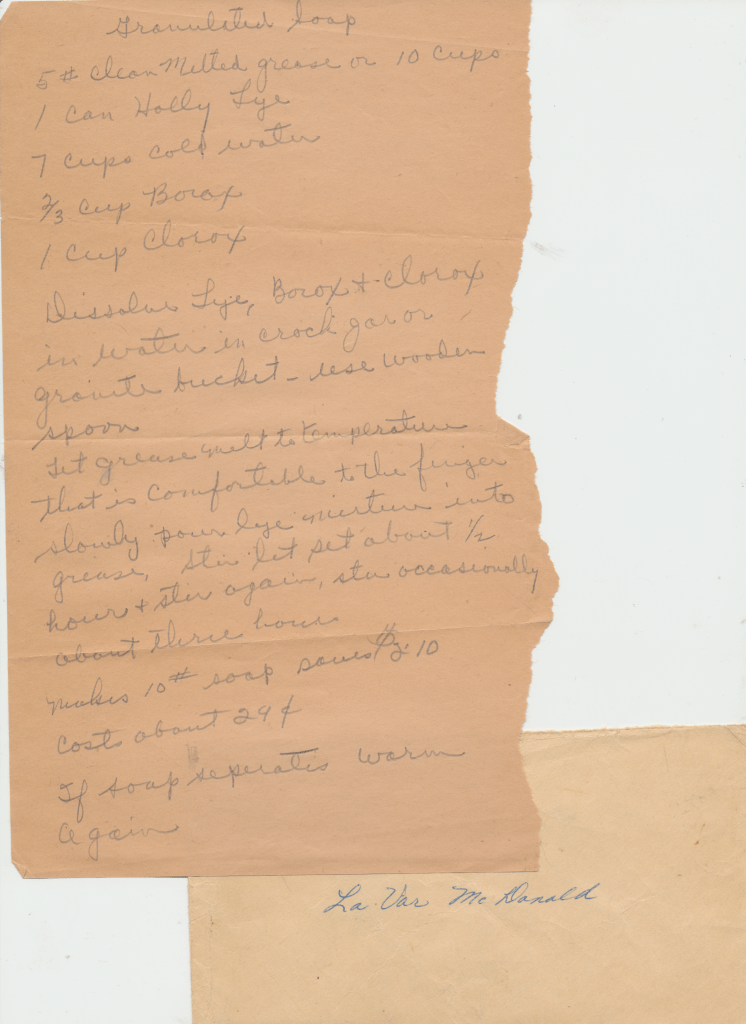 Granulated Soap
5# clean Melted grease or 10 cups
1 can Holly Lye
7 cups cold water
2/3 cup Borox
1 cup Clorox
Dissolve Lye, Borox + Clorox
in water in crock gar or
granite bucket - use wooden
spoon
Let grease melt to temperature
that is comfortable to the finger
slowly pour lye mixture into
grease, stir let set about 1/2
hour + stir again, stir occasionally
about three hours
makes 10# soap saves $2.10
costs about 29¢
If soap seperates warm
again
La Var McDonald